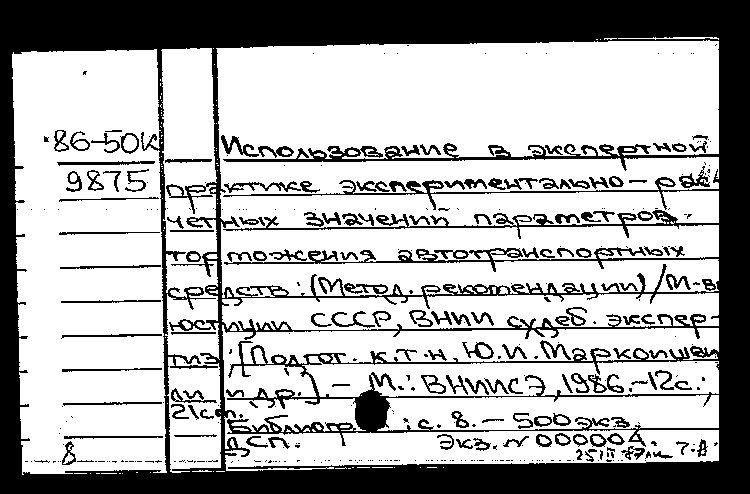 86-50К
9875
Использование в экспертной
практике экспериментально-рас-
четных значений параметров
торможения автотранспортных
средств: (Метод. рекомендации)/М-во
юстиции СССР, ВНИИ судеб. экспер-
тиз; [Подгот. к.т.н. Ю.И. Маркоишви
ли и др.]. – М.: ВНИИСЭ, 1986.-12с.;
21см.
Библиогр. : с. 8. – 500 экз.
ДСП. Экз. N 000004.
8